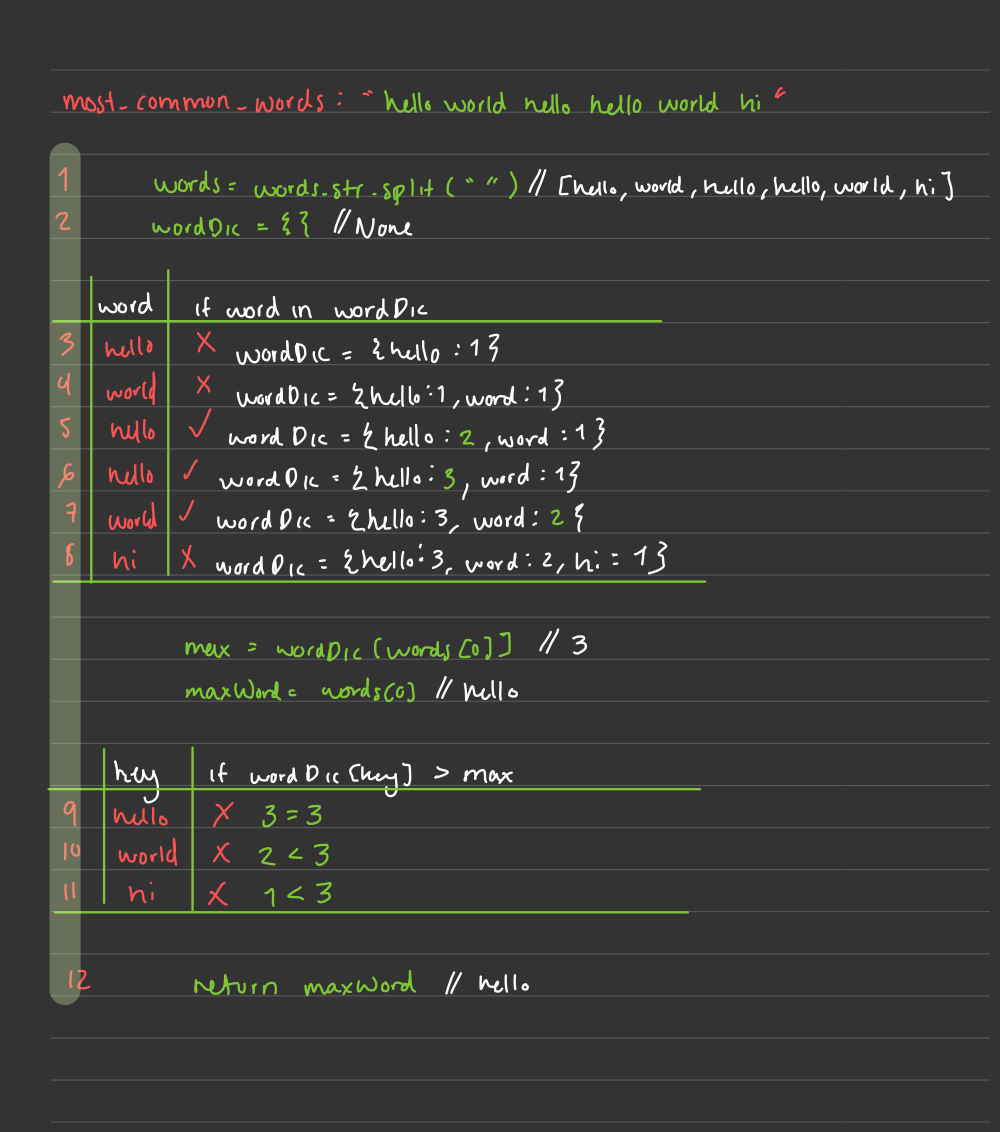 most_common_words : " hello world hello hello world hi "
1 words = words.str.split (" ") // [hello, world, hello, hello, world, hi]
2 wordDic = {} // None
word if word in wordDic
3 hello X wordDic = {hello : 1}
4 world X wordDic = {hello : 1, word : 1}
5 hello ✓ wordDic = {hello : 2, word : 1}
6 hello ✓ wordDic = {hello : 3, word : 1}
7 world ✓ wordDic = {hello : 3, word : 2 {
8 hi X wordDic = {hello : 3, word : 2, hi = 1}
max = wordDic [words [0]] // 3
maxWord = words[0] // hello
key if wordDic [key] > max
9 hello X 3 = 3
10 world X 2 < 3
11 hi X 1 < 3
12 return maxWord // hello